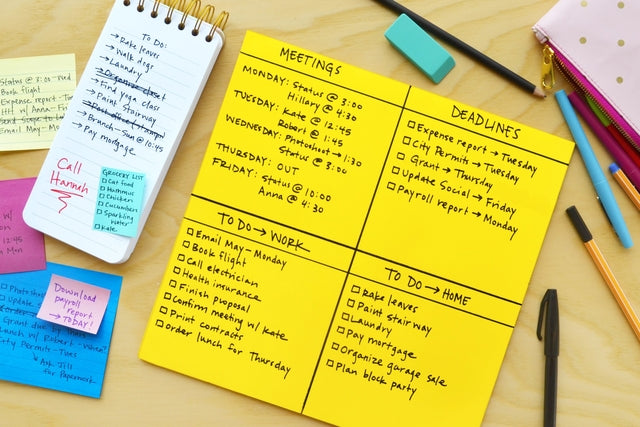 Status @ 3:00 - Wed
Book flight
Expense report - Tu
HH w/ Anna - Fri
Email May - Mon
12:45
on Mon
To Do:
→ Rake leaves
→ Walk dogs
→ Laundry
→ Organize closet
→ Find yoga class
→ Paint Stairway
→ Brunch - Sun @ 10:45
→ Pay mortgage
Call
Hannah
GROCERY LIST
Cat food
Hummus
Chicken
Cucumber
Sparkling
Water
Kale
Download
payroll
report
→ TODAY!
Photosh
update s
Grant due by
Lunch w/ Robert - when?
City Permits - Tues
↳ Ask Jill
for Paperwork
MEETINGS
MONDAY: Status @ 3:00
Hillary @ 4:30
TUESDAY: Kate @ 12:45
Robert @ 1:45
WEDNESDAY: Photoshoot → 1:30
Status @ 3:00
THURSDAY: OUT
FRIDAY: Status @ 10:00
Anna @ 4:30
DEADLINES
Expense report → Tuesday
City Permits → Tuesday
Grant → Thursday
Update Social → Friday
Payroll report → Monday
TO DO → WORK
Email May - Monday
Book flight
Call electrician
Health insurance
Finish proposal
Confirm meeting w/ Kate
Print contracts
Order lunch for Thursday
TO DO → HOME
Rake leaves
Paint Stairway
Laundry
Pay mortgage
Organize garage sale
Plan block party